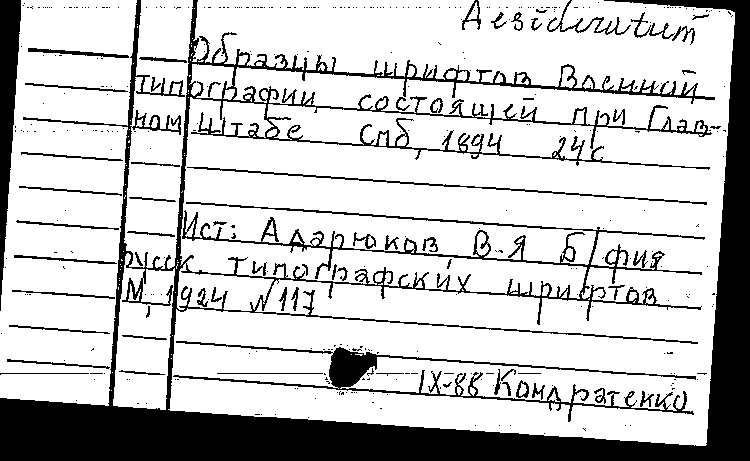 Desideratum
Образцы шрифтов Военной
типографии, состоящей при Глав-
ном Штабе Спб, 1894 24 с
Ист: Адарюков, В.Я Б/фия
русск. типографских шрифтов
М, 1924 № 117
IX-88 Кондратенко